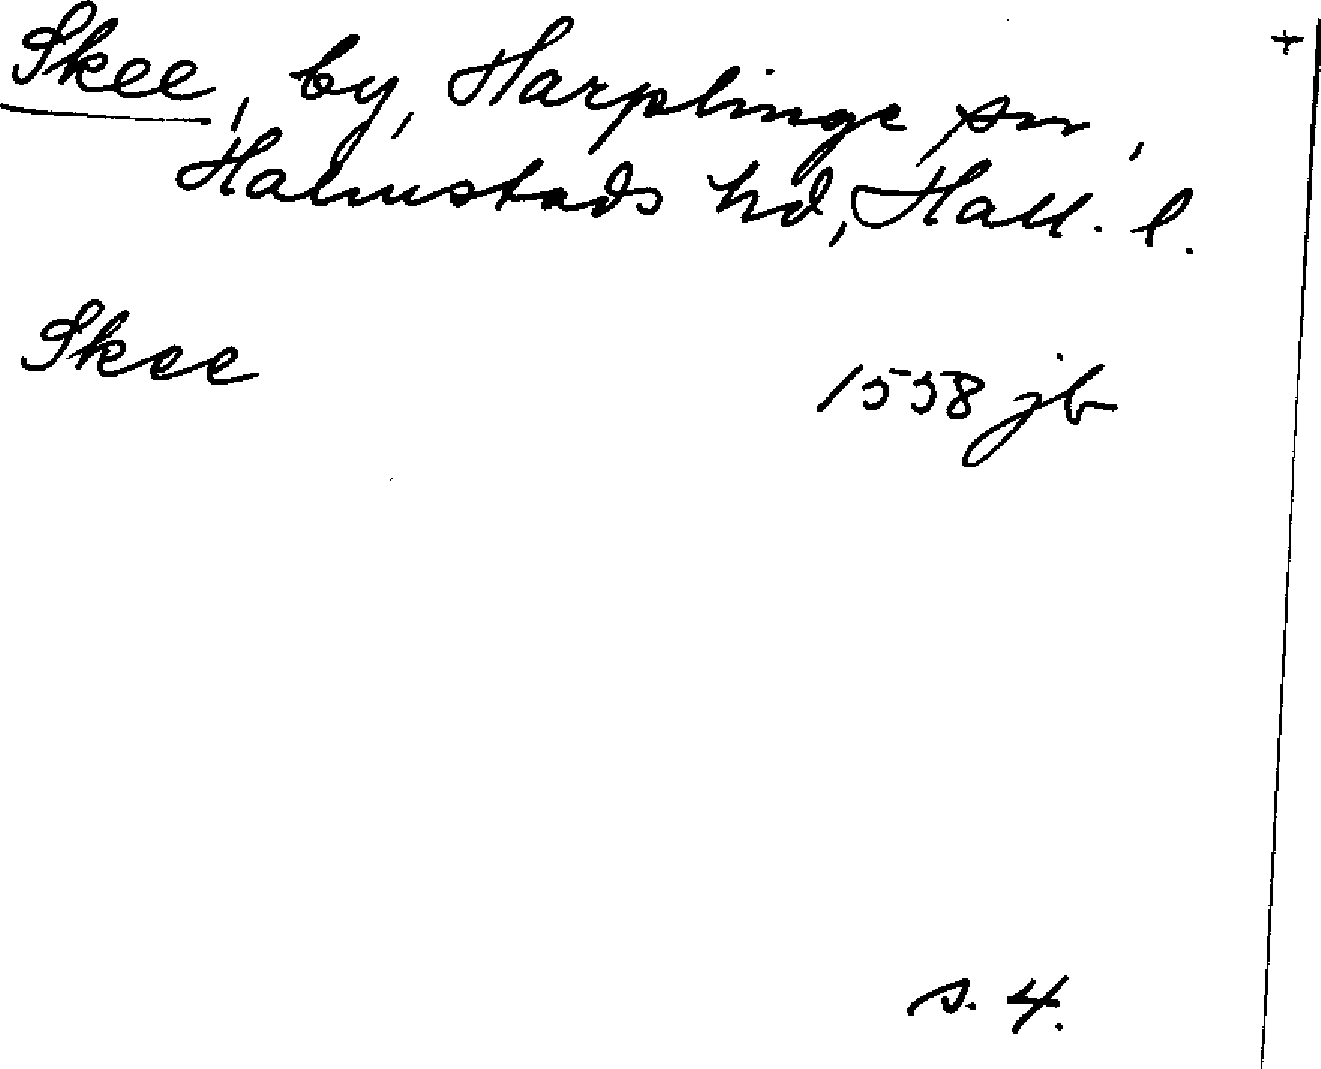 Skee, by, Harplinge sn, +
Halmstads hd, Hall. l.
Skee 1558 jb
s. 4.